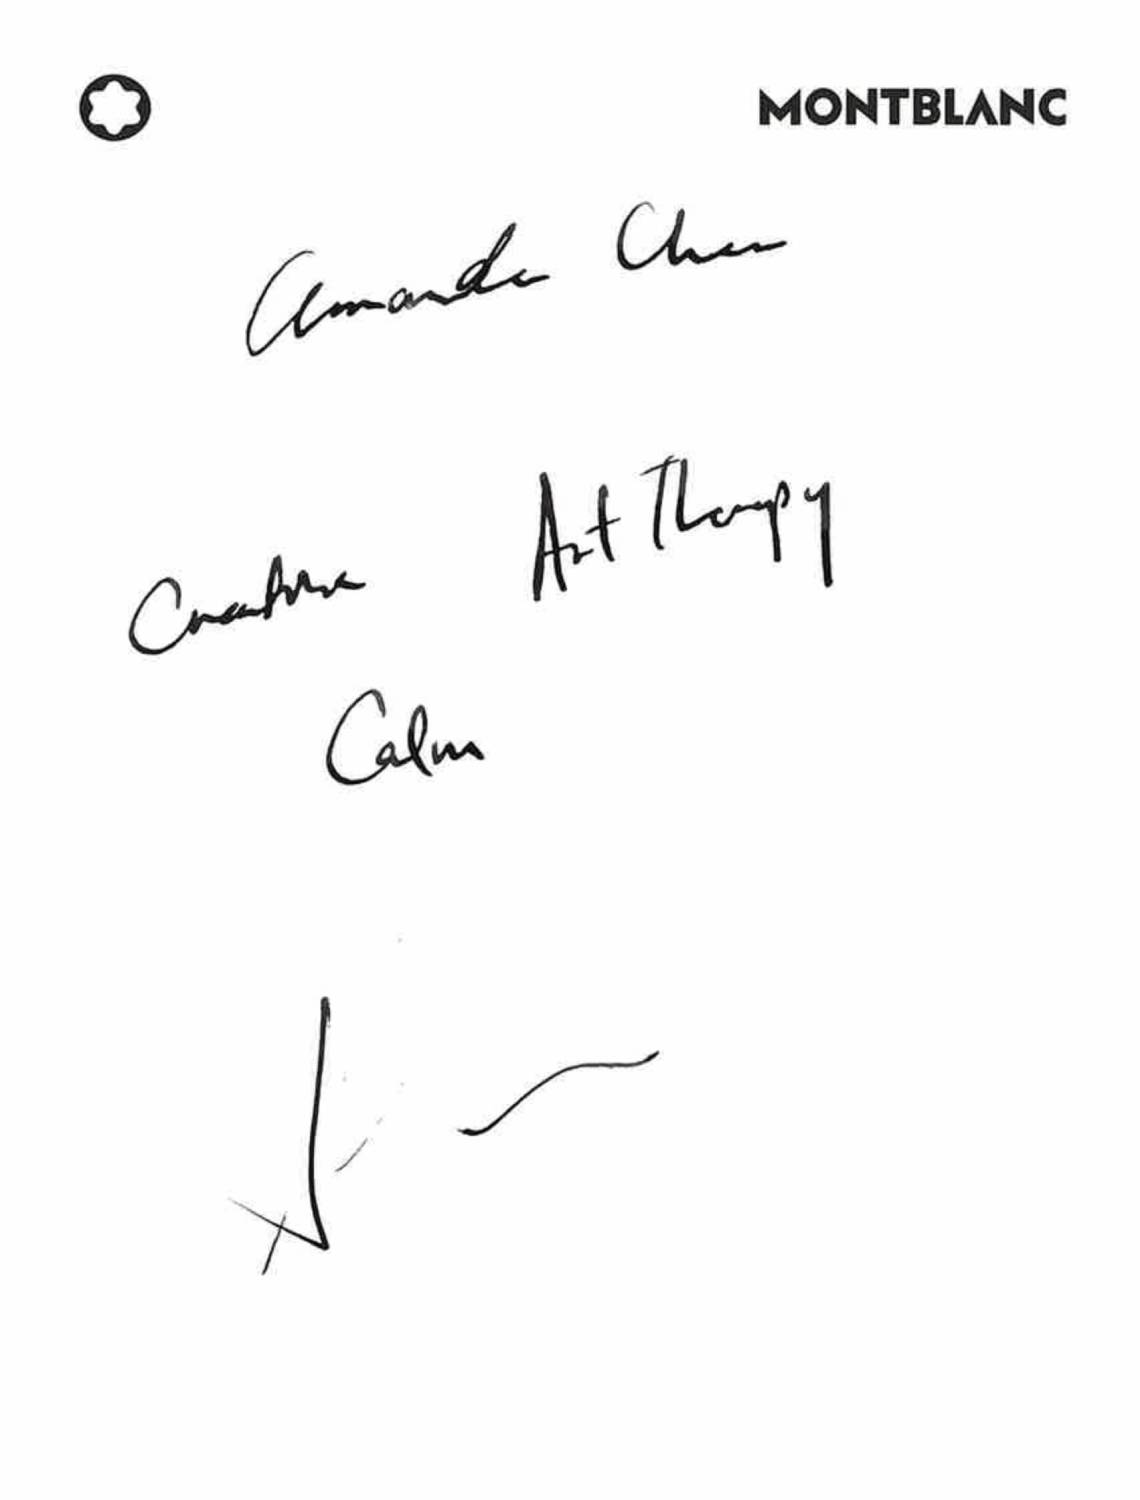 MONTBLANC
Amanda Chen
Creative Art Therapy
Calm